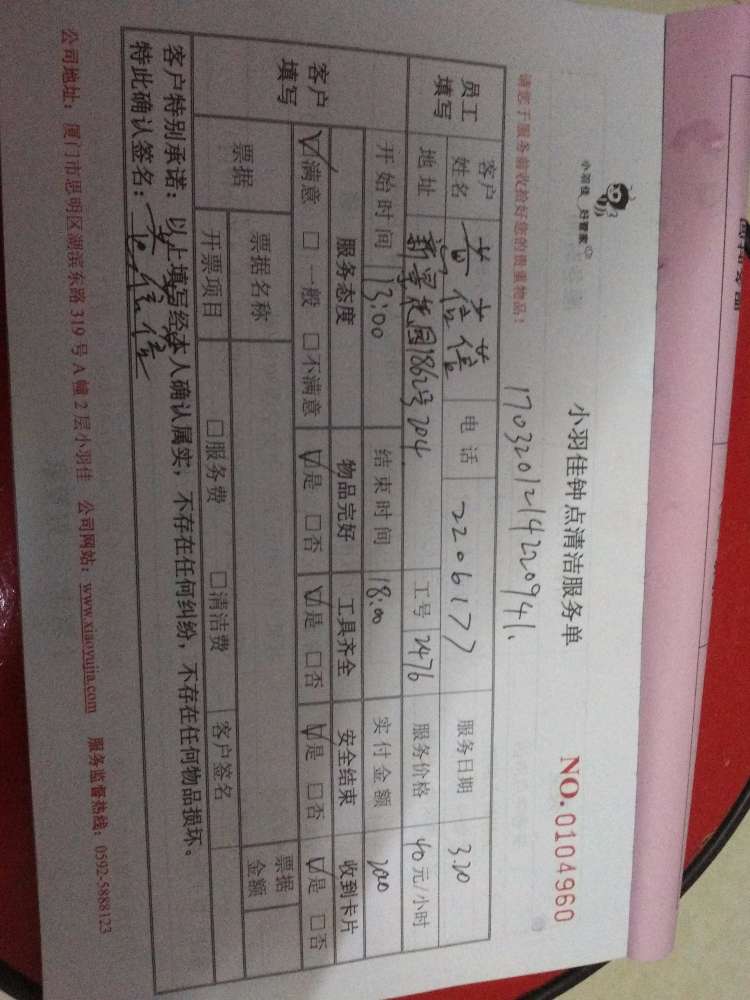 小羽佳 好管家
小羽佳钟点清洁服务单
NO.0104960
请您于服务前收拾好您的贵重物品！
1703201214220941.
员工填写 客户姓名 电话 2206177 服务日期 3.20
地址 新景花园186号204. 工号 2476 服务价格 40元/小时
客户填写 开始时间 13:00 结束时间 18:00 实付金额 200
服务态度 物品完好 工具齐全 安全结束 收到卡片
☑满意 □一般 □不满意 ☑是 □否 ☑是 □否 ☑是 □否 ☑是 □否
票据 票据名称 票据金额
开票项目 □服务费 □清洁费 客户签名
客户特别承诺：以上填写经本人确认属实，不存在任何纠纷，不存在任何物品损坏。
特此确认签名：
公司地址：厦门市思明区湖滨东路319号A幢2层小羽佳 公司网站：www.xiaoyujia.com 服务监督热线：0592-5888123